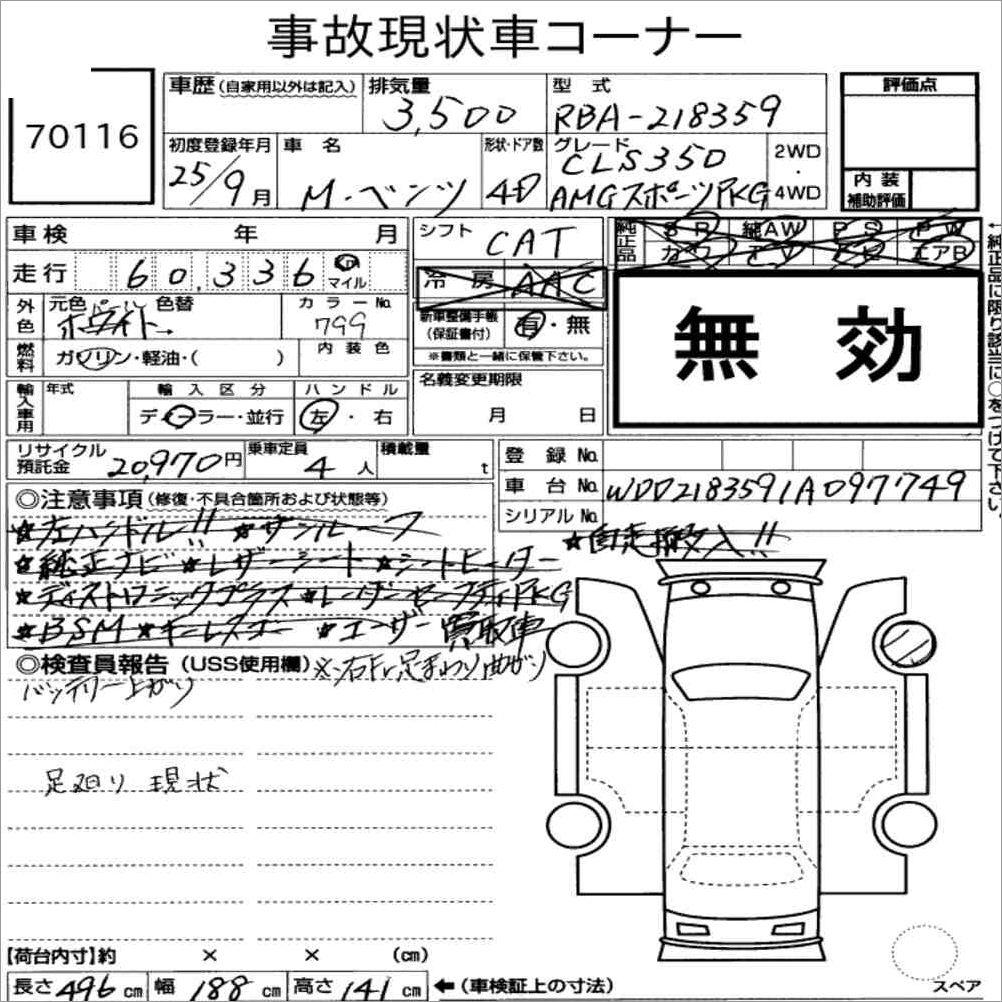 事故現状車コーナー
70116
車歴 (自家用以外は記入) 排気量 3,500 型式 RBA-218359
初度登録年月 25/9月 車名 M・ベンツ 形状・ドア数 4D グレード CLS350 AMGスポーツPKG 2WD・4WD
評価点
内装補助評価
車検 年 月
走行 60,336 マイル
シフト CAT
冷房 AAC
純正品 SR 純AW PS PW
カワ エアB
←純正品に限り該当に○をつけて下さい。
無効
外色 元色 ホワイト 色替 カラーNo. 799
燃料 ガソリン・軽油・( ) 内装色
新車整備手帳(保証書付) 有・無
※書類と一緒に保管下さい。
輸入車用 年式 輸入区分 ディーラー・並行 ハンドル 左・右
名義変更期限 月 日
リサイクル預託金 20,970円 乗車定員 4人 積載量 t
登録No.
車台No. WDD2183591A097749
シリアルNo.
◎注意事項 (修復・不具合箇所および状態等)
★左ハンドル!! ★サンルーフ
★自走搬入!!
★純正ナビ★レザーシート★シートヒーター
★ディストロニックプラス★レーダーセーフティPKG
★BSM★キーレスゴー ★ユーザー買取車
◎検査員報告 (USS使用欄) ※右Fr足まわり曲がり
バッテリー上がり
足廻り 現状
【荷台内寸】約 × × (cm)
長さ 496 cm 幅 188 cm 高さ 141 cm ←(車検証上の寸法)
スペア